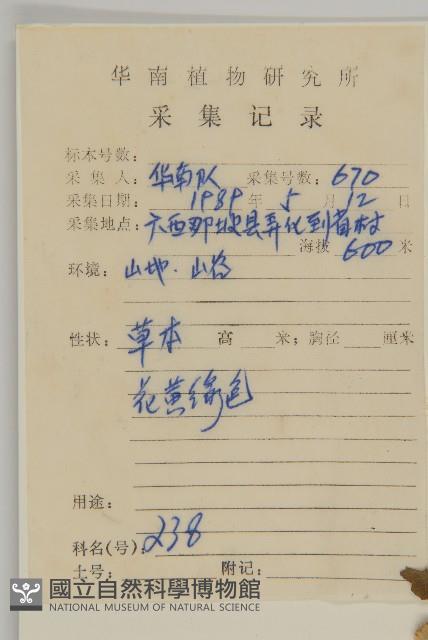 华南植物研究所
采集记录
标本号数：
采集人：华南队 采集号数：670
采集日期：1989年5月12日
采集地点：广西那坡县弄化到首村
海拔600米
环境：山地．山谷
性状：草本 高 米；胸径 厘米
花黄绿色
用途：
科名(号)：238
土号： 附记：
國立自然科學博物館
NATIONAL MUSEUM OF NATURAL SCIENCE